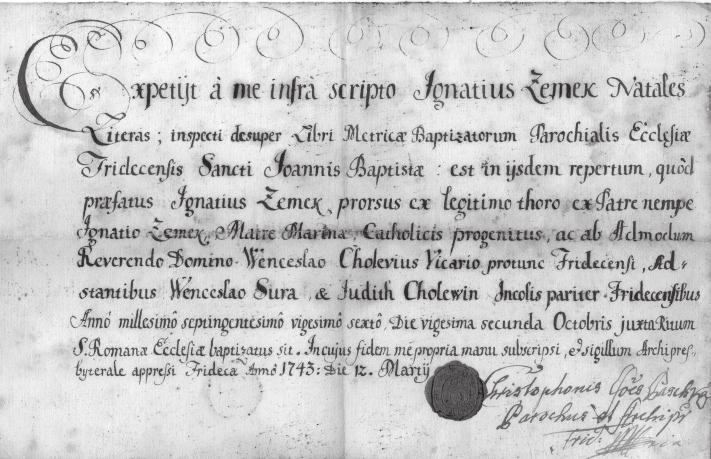 Expetijt à me infrà scripto Ignatius Zemek Natales
Literas ; inspecti desuper Libri Metricæ Baptizatorum Parochialis Ecclesiæ
Fridecensis Sancti Joannis Baptistæ : est in ijsdem repertum, quòd
præfatus Ignatius Zemek, prorsus ex legitimo thoro ex Patre nempe
Ignatio Zemek, Matre Marina Catholicis progenitus, ac ab Admodum
Reverendo Domino Wenceslao Cholevius Vicario protunc Fridecensi, Ad-
stantibus Wenceslao Sura, & Judith Cholewin Incolis pariter Fridecensibus
Annô millesimô septingentesimô vigesimô sextô, Die vigesima secunda Octobris juxta Ritum
S. Romanæ Ecclesiæ baptizatus sit. In cujus fidem me propria manu subscripsi, et sigillum Archipres-
byterale appressi Fridecæ Anno 1743: Die 12. Martij
Christophorus
Parochus et Archipr
Frid: